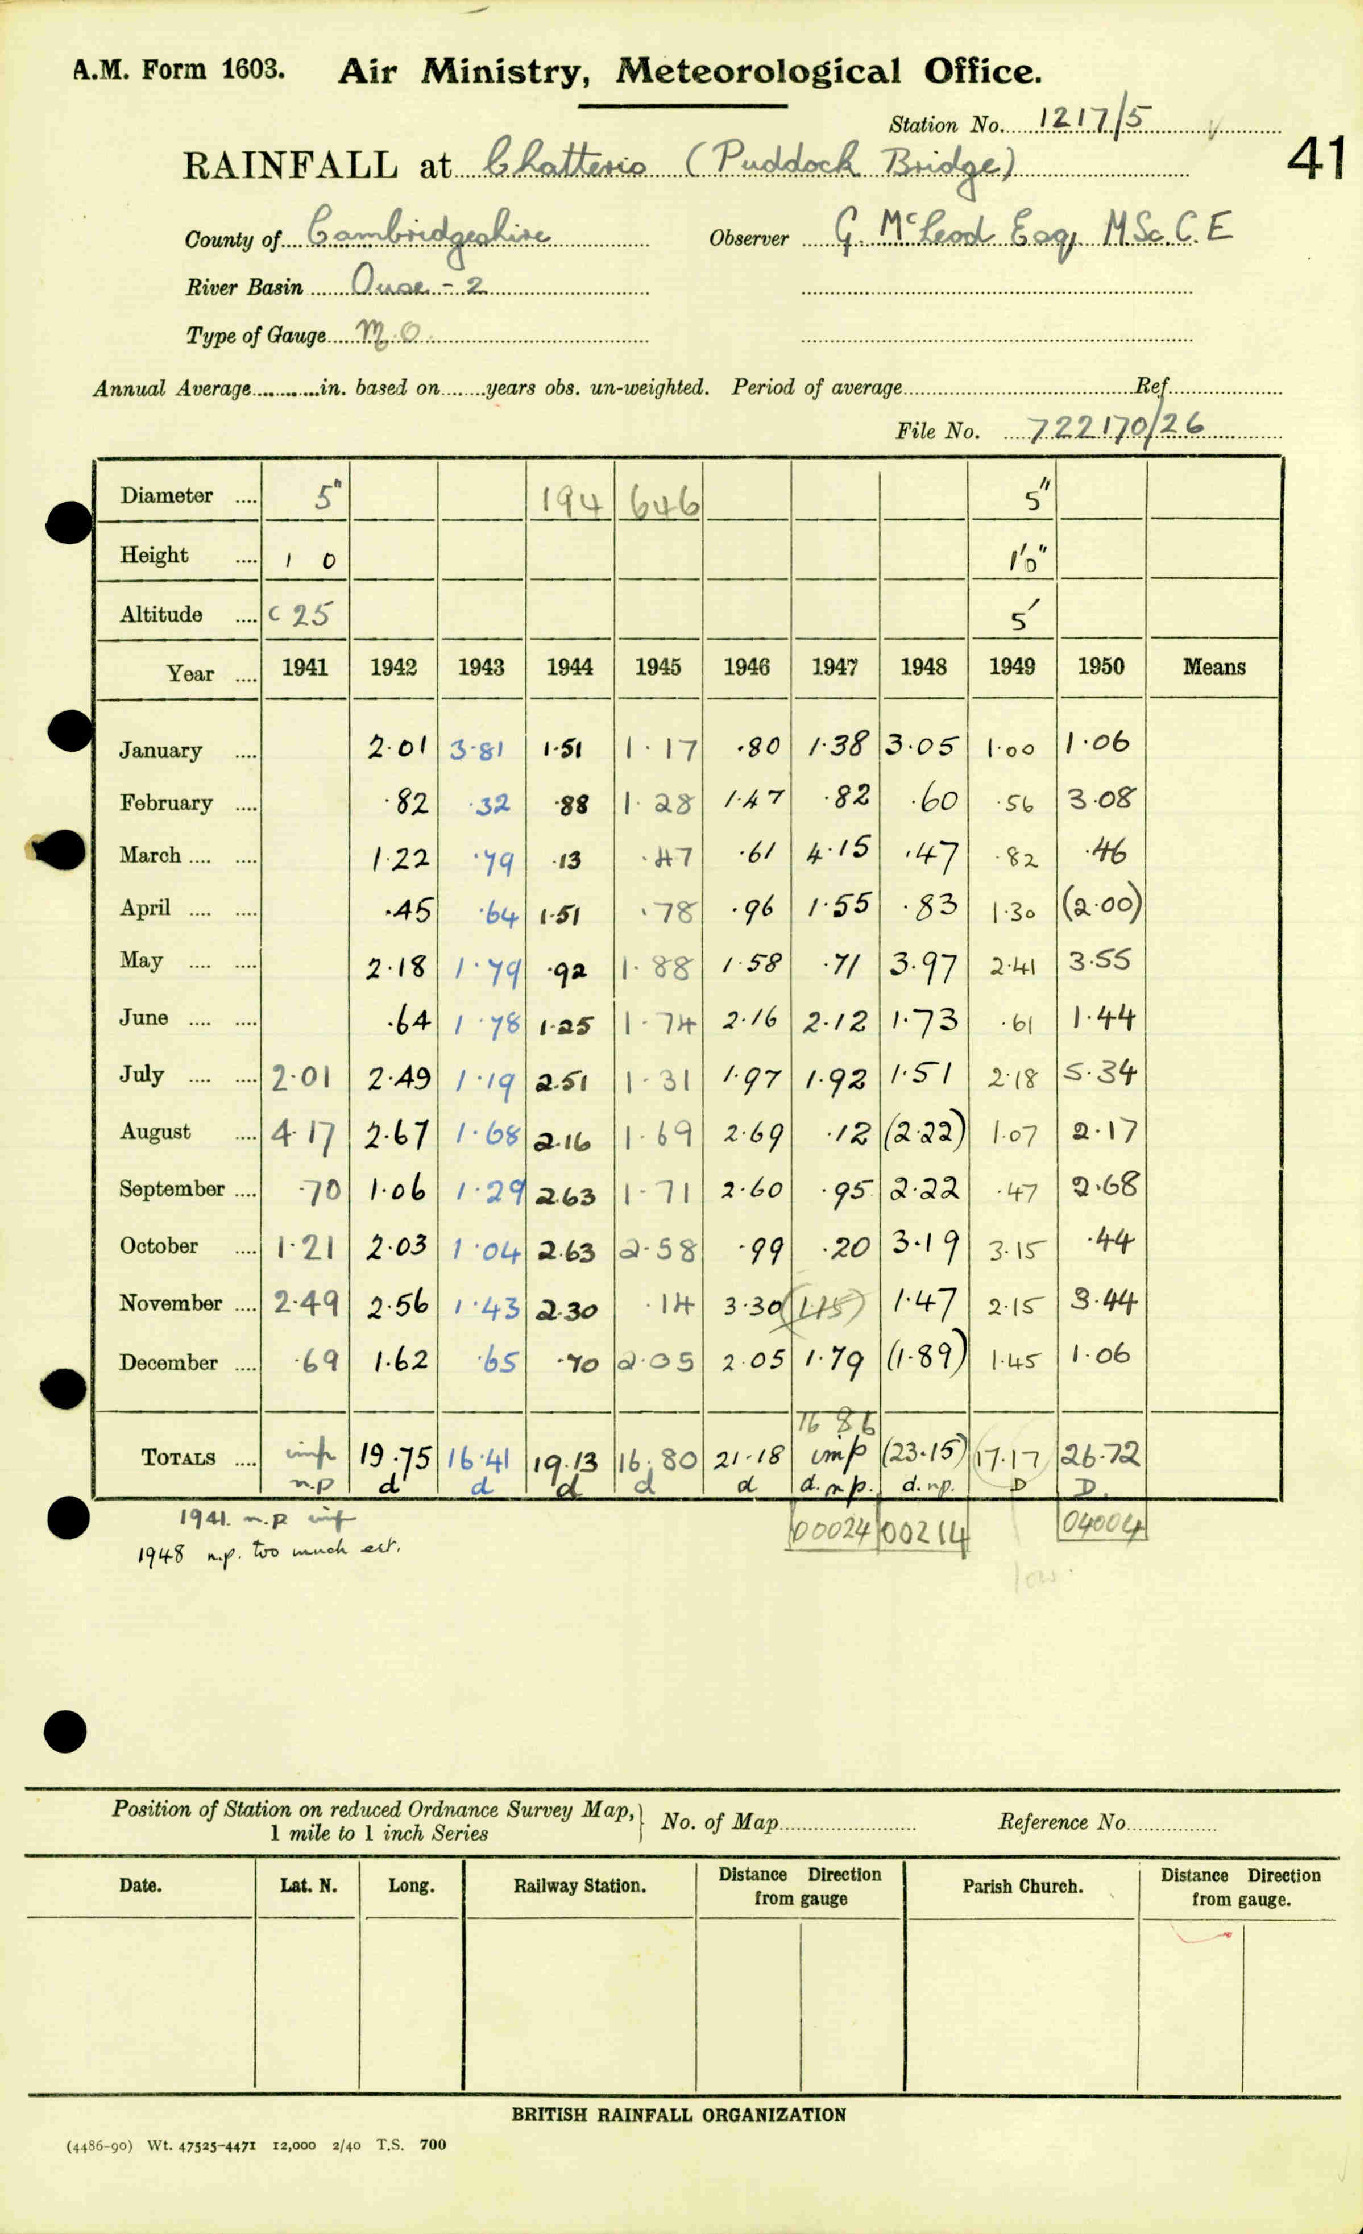 A.M. Form 1603. Air Ministry, Meteorological Office.
Station No. 1217/5
RAINFALL at Chatteris (Puddock Bridge)
41
County of Cambridgeshire Observer G. McLeod Esq, M.Sc. C.E
River Basin Ouse - 2
Type of Gauge M.O.
Annual Average in. based on years obs. un-weighted. Period of average Ref.
File No. 722170/26
Diameter 5" 194 646 5"
Height 1 0 1'0"
Altitude c 25 5'
Year 1941 1942 1943 1944 1945 1946 1947 1948 1949 1950 Means
January 2.01 3.81 1.51 1.17 .80 1.38 3.05 1.00 1.06
February .82 .32 .88 1.28 1.47 .82 .60 .56 3.08
March .... 1.22 .79 .13 .47 .61 4.15 .47 .82 .46
April .... .45 .64 1.51 .78 .96 1.55 .83 1.30 (2.00)
May .... 2.18 1.79 .92 1.88 1.58 .71 3.97 2.41 3.55
June .... .64 1.78 1.25 1.74 2.16 2.12 1.73 .61 1.44
July .... 2.01 2.49 1.19 2.51 1.31 1.97 1.92 1.51 2.18 5.34
August 4.17 2.67 1.68 2.16 1.69 2.69 .12 (2.22) 1.07 2.17
September .70 1.06 1.29 2.63 1.71 2.60 .95 2.22 .47 2.68
October 1.21 2.03 1.04 2.63 2.58 .99 .20 3.19 3.15 .44
November 2.49 2.56 1.43 2.30 .14 3.30 (1.15) 1.47 2.15 3.44
December .69 1.62 .65 .70 2.05 2.05 1.79 (1.89) 1.45 1.06
16 86
TOTALS imp 19.75 16.41 19.13 16.80 21.18 imp (23.15) 17.17 26.72
n.p d d d d d d. n.p. d. n.p. D D.
1941. n.p imp
00024 00214 04004
1948 n.p. too much est.
low.
Position of Station on reduced Ordnance Survey Map, 1 mile to 1 inch Series } No. of Map Reference No.
Date. Lat. N. Long. Railway Station. Distance Direction from gauge Parish Church. Distance Direction from gauge.
BRITISH RAINFALL ORGANIZATION
(4486-90) Wt. 47525-4471 12,000 2/40 T.S. 700